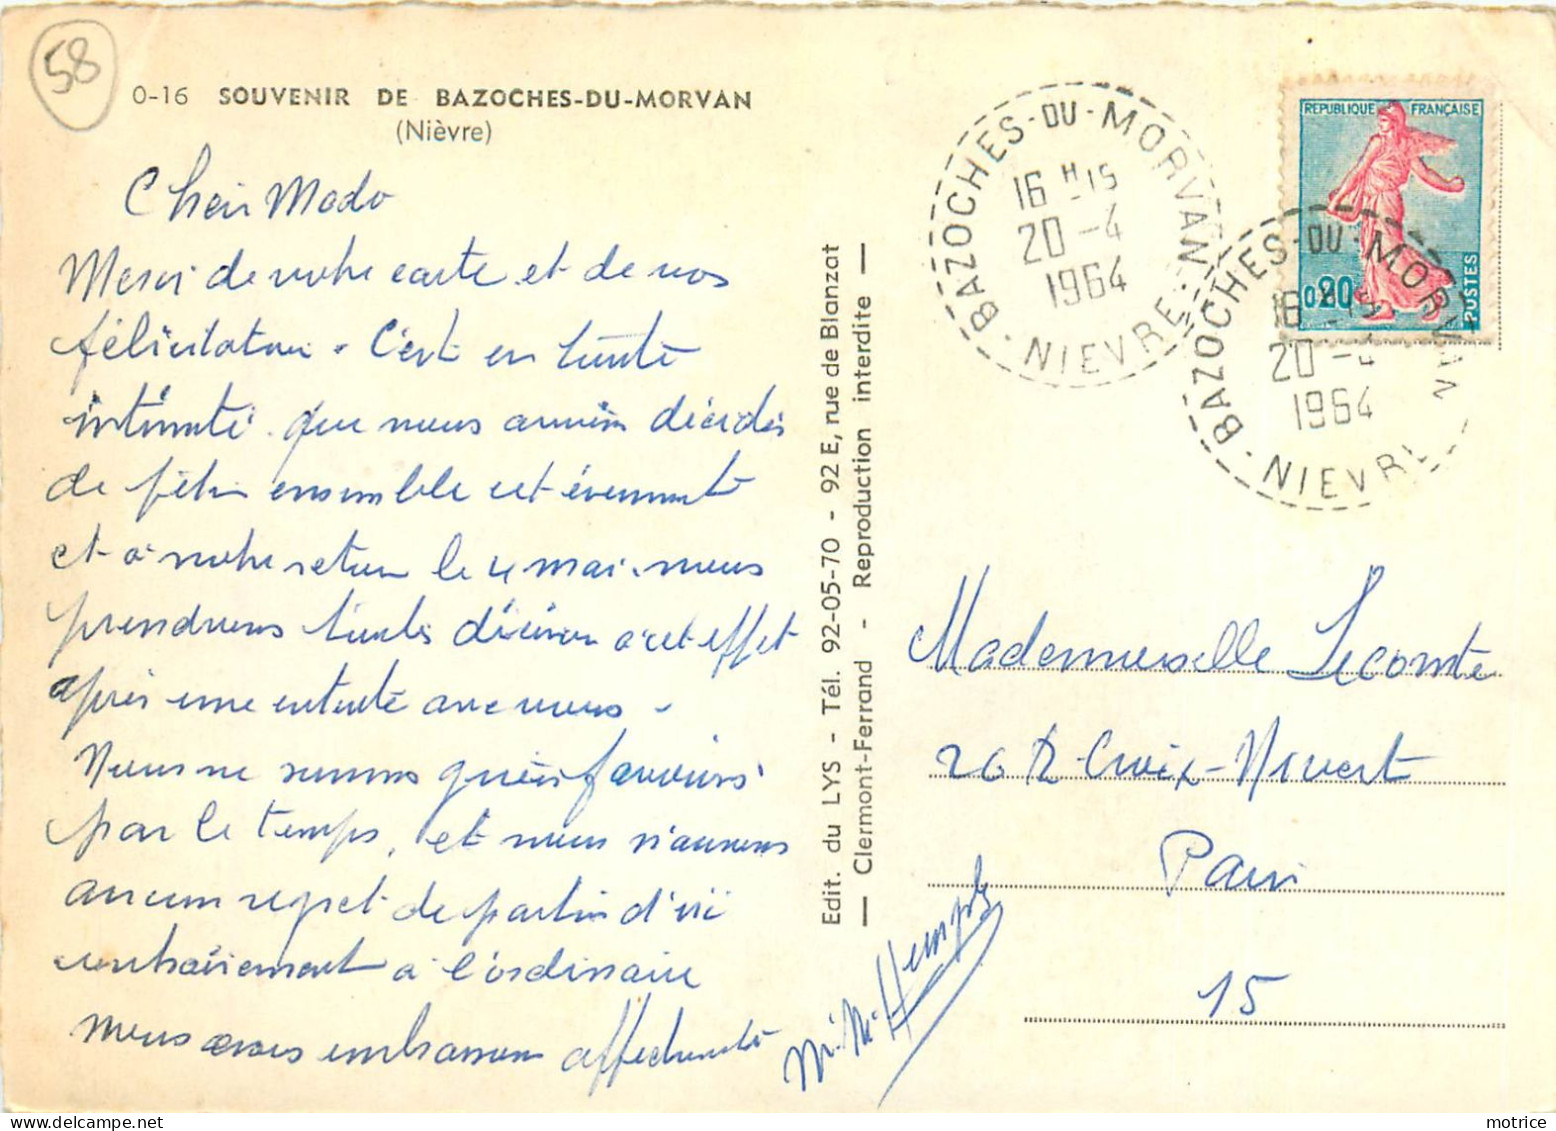 58
0-16 SOUVENIR DE BAZOCHES-DU-MORVAN
(Nièvre)
Cheir Mado
Merci de votre carte et de vos
félicitation. C'est en toute
intimité que nous avions décidés
de fêter ensemble cet évenement
et à notre retour le 4 mai. nous
prendrons toutes décision a cet effet
après une entente avec vous -
Nous ne sommes guère favorisé
par le temps, et nous n'aurons
aucun regret de partir d'ici
contrairement à l'ordinaire
Nous vous embrassons affectueusement
M. M.
Edit. du LYS - Tél. 92-05-70 - 92 E, rue de Blanzat
— Clermont-Ferrand - Reproduction interdite —
BAZOCHES-DU-MORVAN
16 H 15
20 -4
1964
NIEVRE
REPUBLIQUE FRANÇAISE
0,20
POSTES
BAZOCHES-DU-MORVAN
16 H 15
20 -4
1964
NIEVRE
Mademoiselle Lecomte
202 R Croix-Nivert
Paris
15
motrice